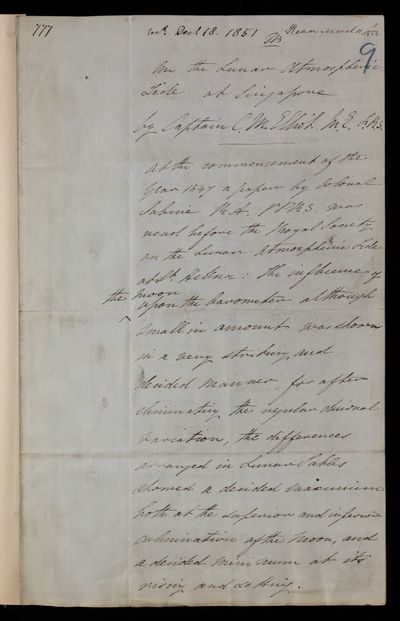 777
recd. Decr 18. 1851
Read March 11. 1852
9
On the Lunar Atmospheric
Tide at Singapore
by Captain C. M. Elliot M.E. F.R.S.
At the commencement of the
year 1847 a paper by Colonel
Sabine R.A. VPRS. was
read before the Royal Society
on the Lunar Atmospheric Tide
at St. Helena: the influence of
the moon
upon the barometer although
small in amount was shown
in a very striking and
decided manner, for after
eliminating the regular diurnal
variation, the differences
arranged in Lunar Tables
showed a decided maximum
both at the superior and inferior
culmination of the Moon, and
a decided minimum at its
rising and setting.